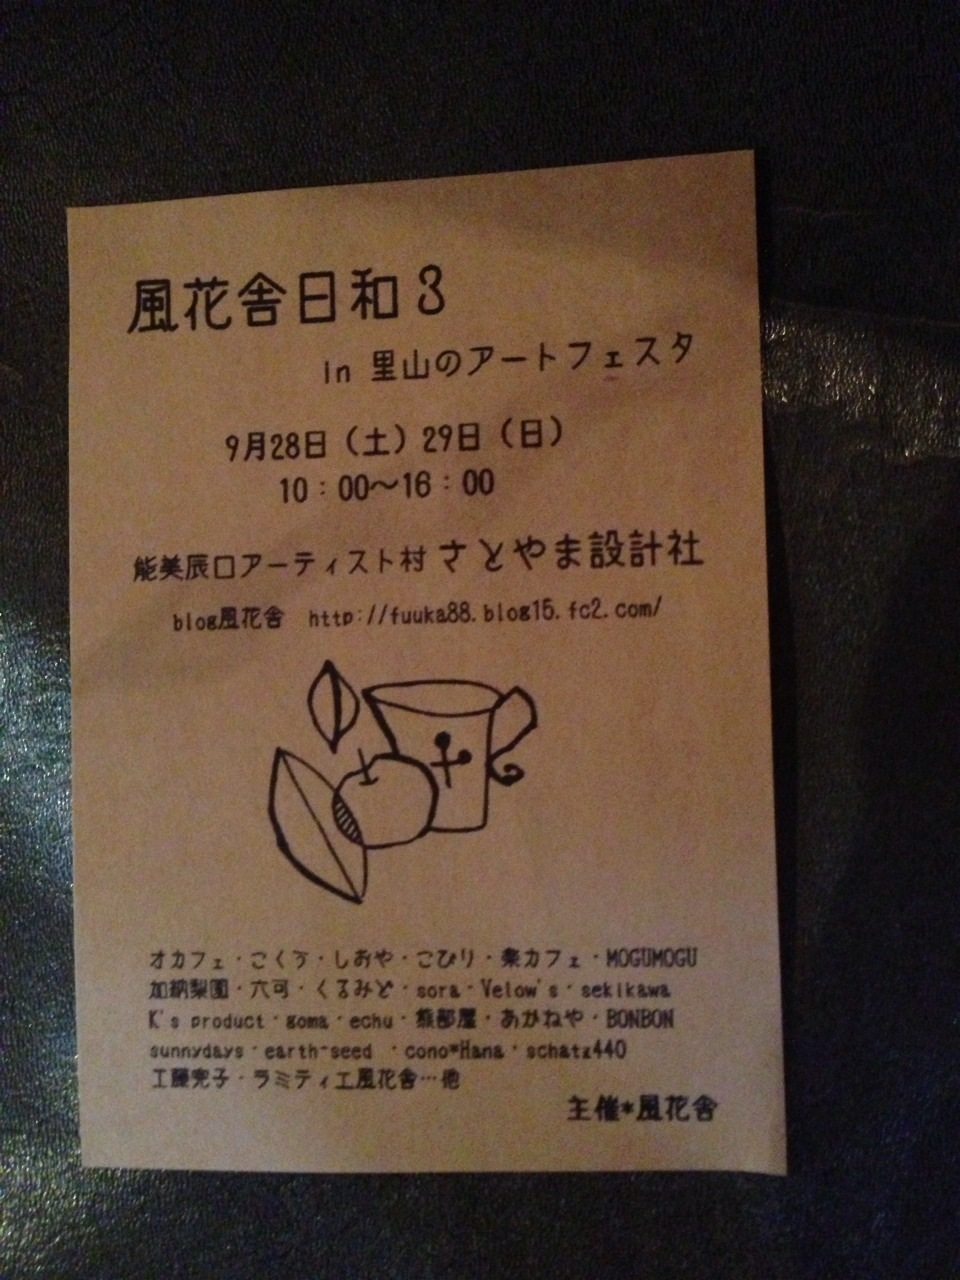 風花舎日和3
in 里山のアートフェスタ
9月28日（土）29日（日）
10：00〜16：00
能美辰口アーティスト村 さとやま設計社
blog風花舎 http://fuuka88.blog15.fc2.com/
オカフェ・こくう・しおや・こびり・楽カフェ・MOGUMOGU
加納梨園・六可・くるみど・sora・Velow's・sekikawa
K's product・goma・echu・熊部屋・あかねや・BONBON
sunnydays・earth-seed ・cono*Hana・schatz440
工藤完子・ラミティエ風花舎…他
主催*風花舎